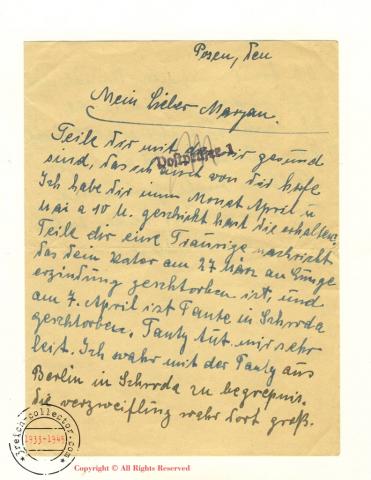 Posen, den
Mein lieber Maryan.
Teile dir mit das wir gesund
sind, das auch von dir hofe
Ich habe dir imm Monat April u
Mai a 10 M. geschickt hast die erhalten?
Teile dir eine Traurige nachricht
das dein Vater am 27 März an Lunge
erzindung geschtorben ist, und
am 7. April ist Tante in Schroda
geschtorben. Tanty tut mir sehr
leit. Ich wahr mit der Tanty aus
Berlin in Schroda zu begrepnis.
die verzweiflung wehr dort groß.
Postprüfer 1
3reich-collector.com
1933-1945
Copyright © All Rights Reserved